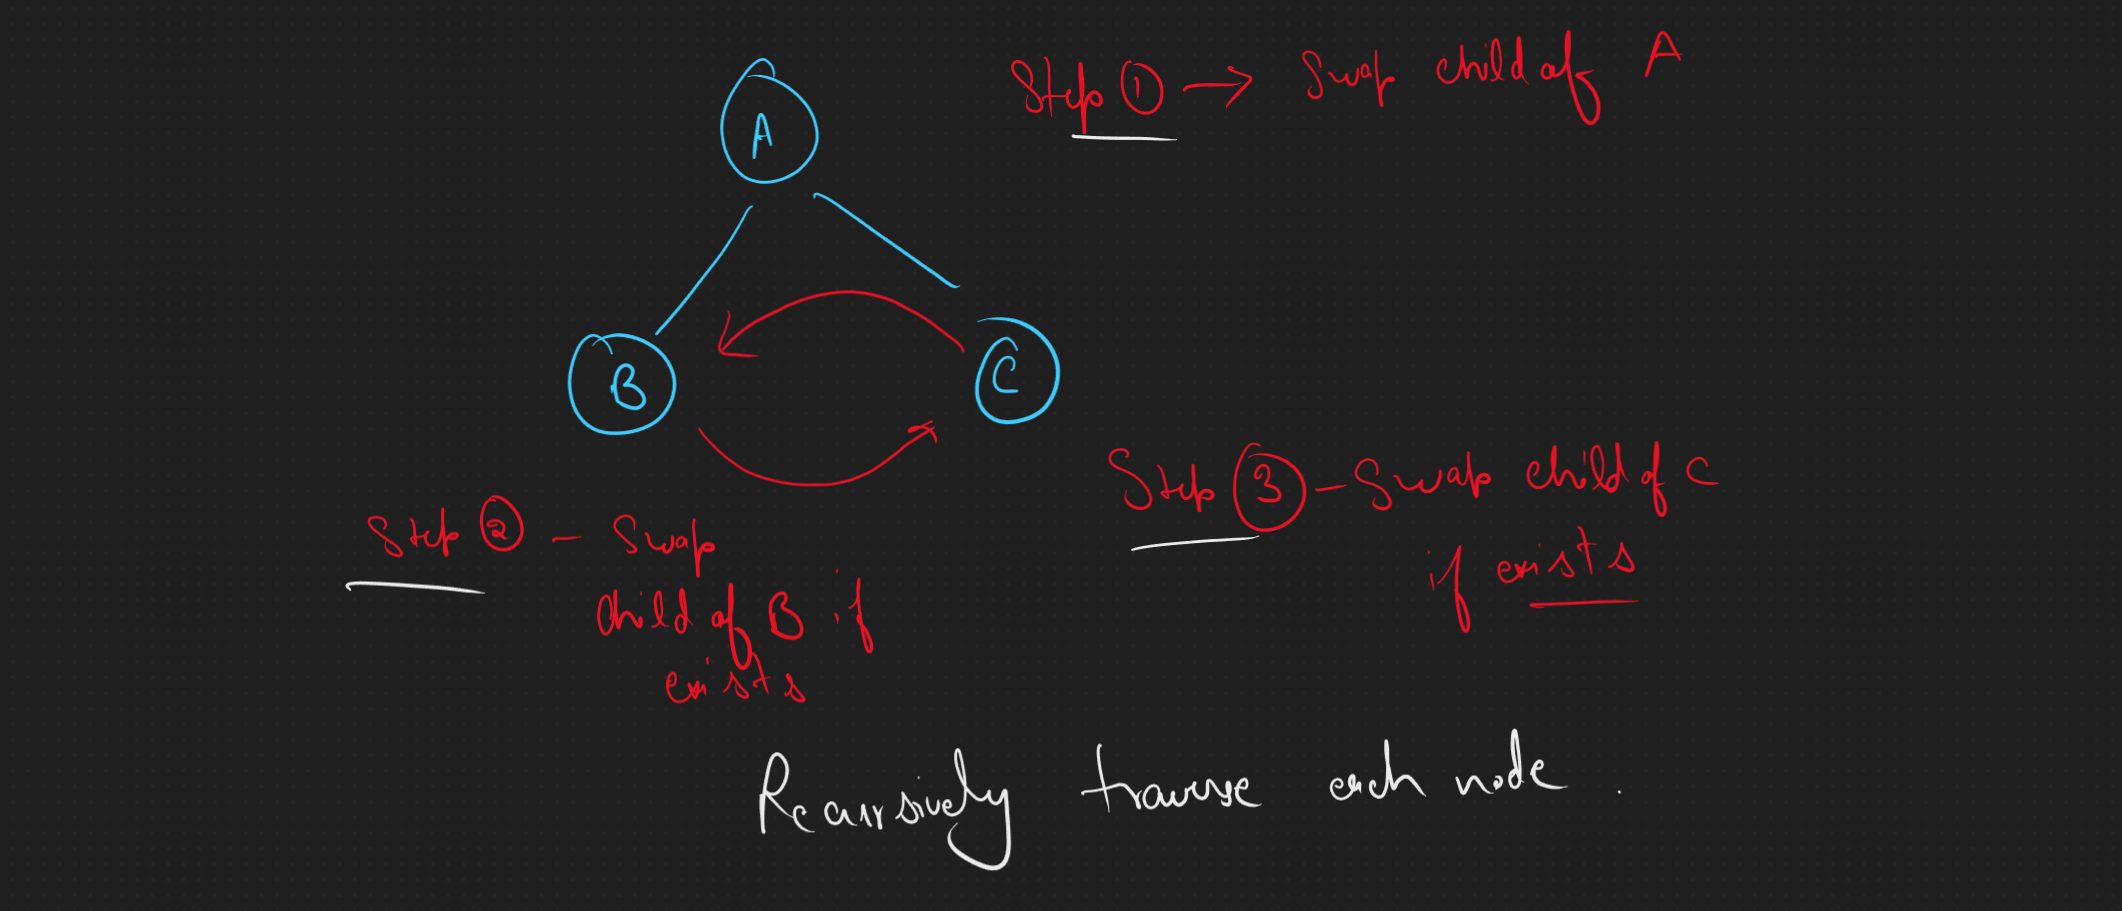 A
Step 1 → Swap child of A
B
C
Step 3 - Swap child of C
if exists
Step 2 - Swap
child of B if
exists
Recursively traverse each node.